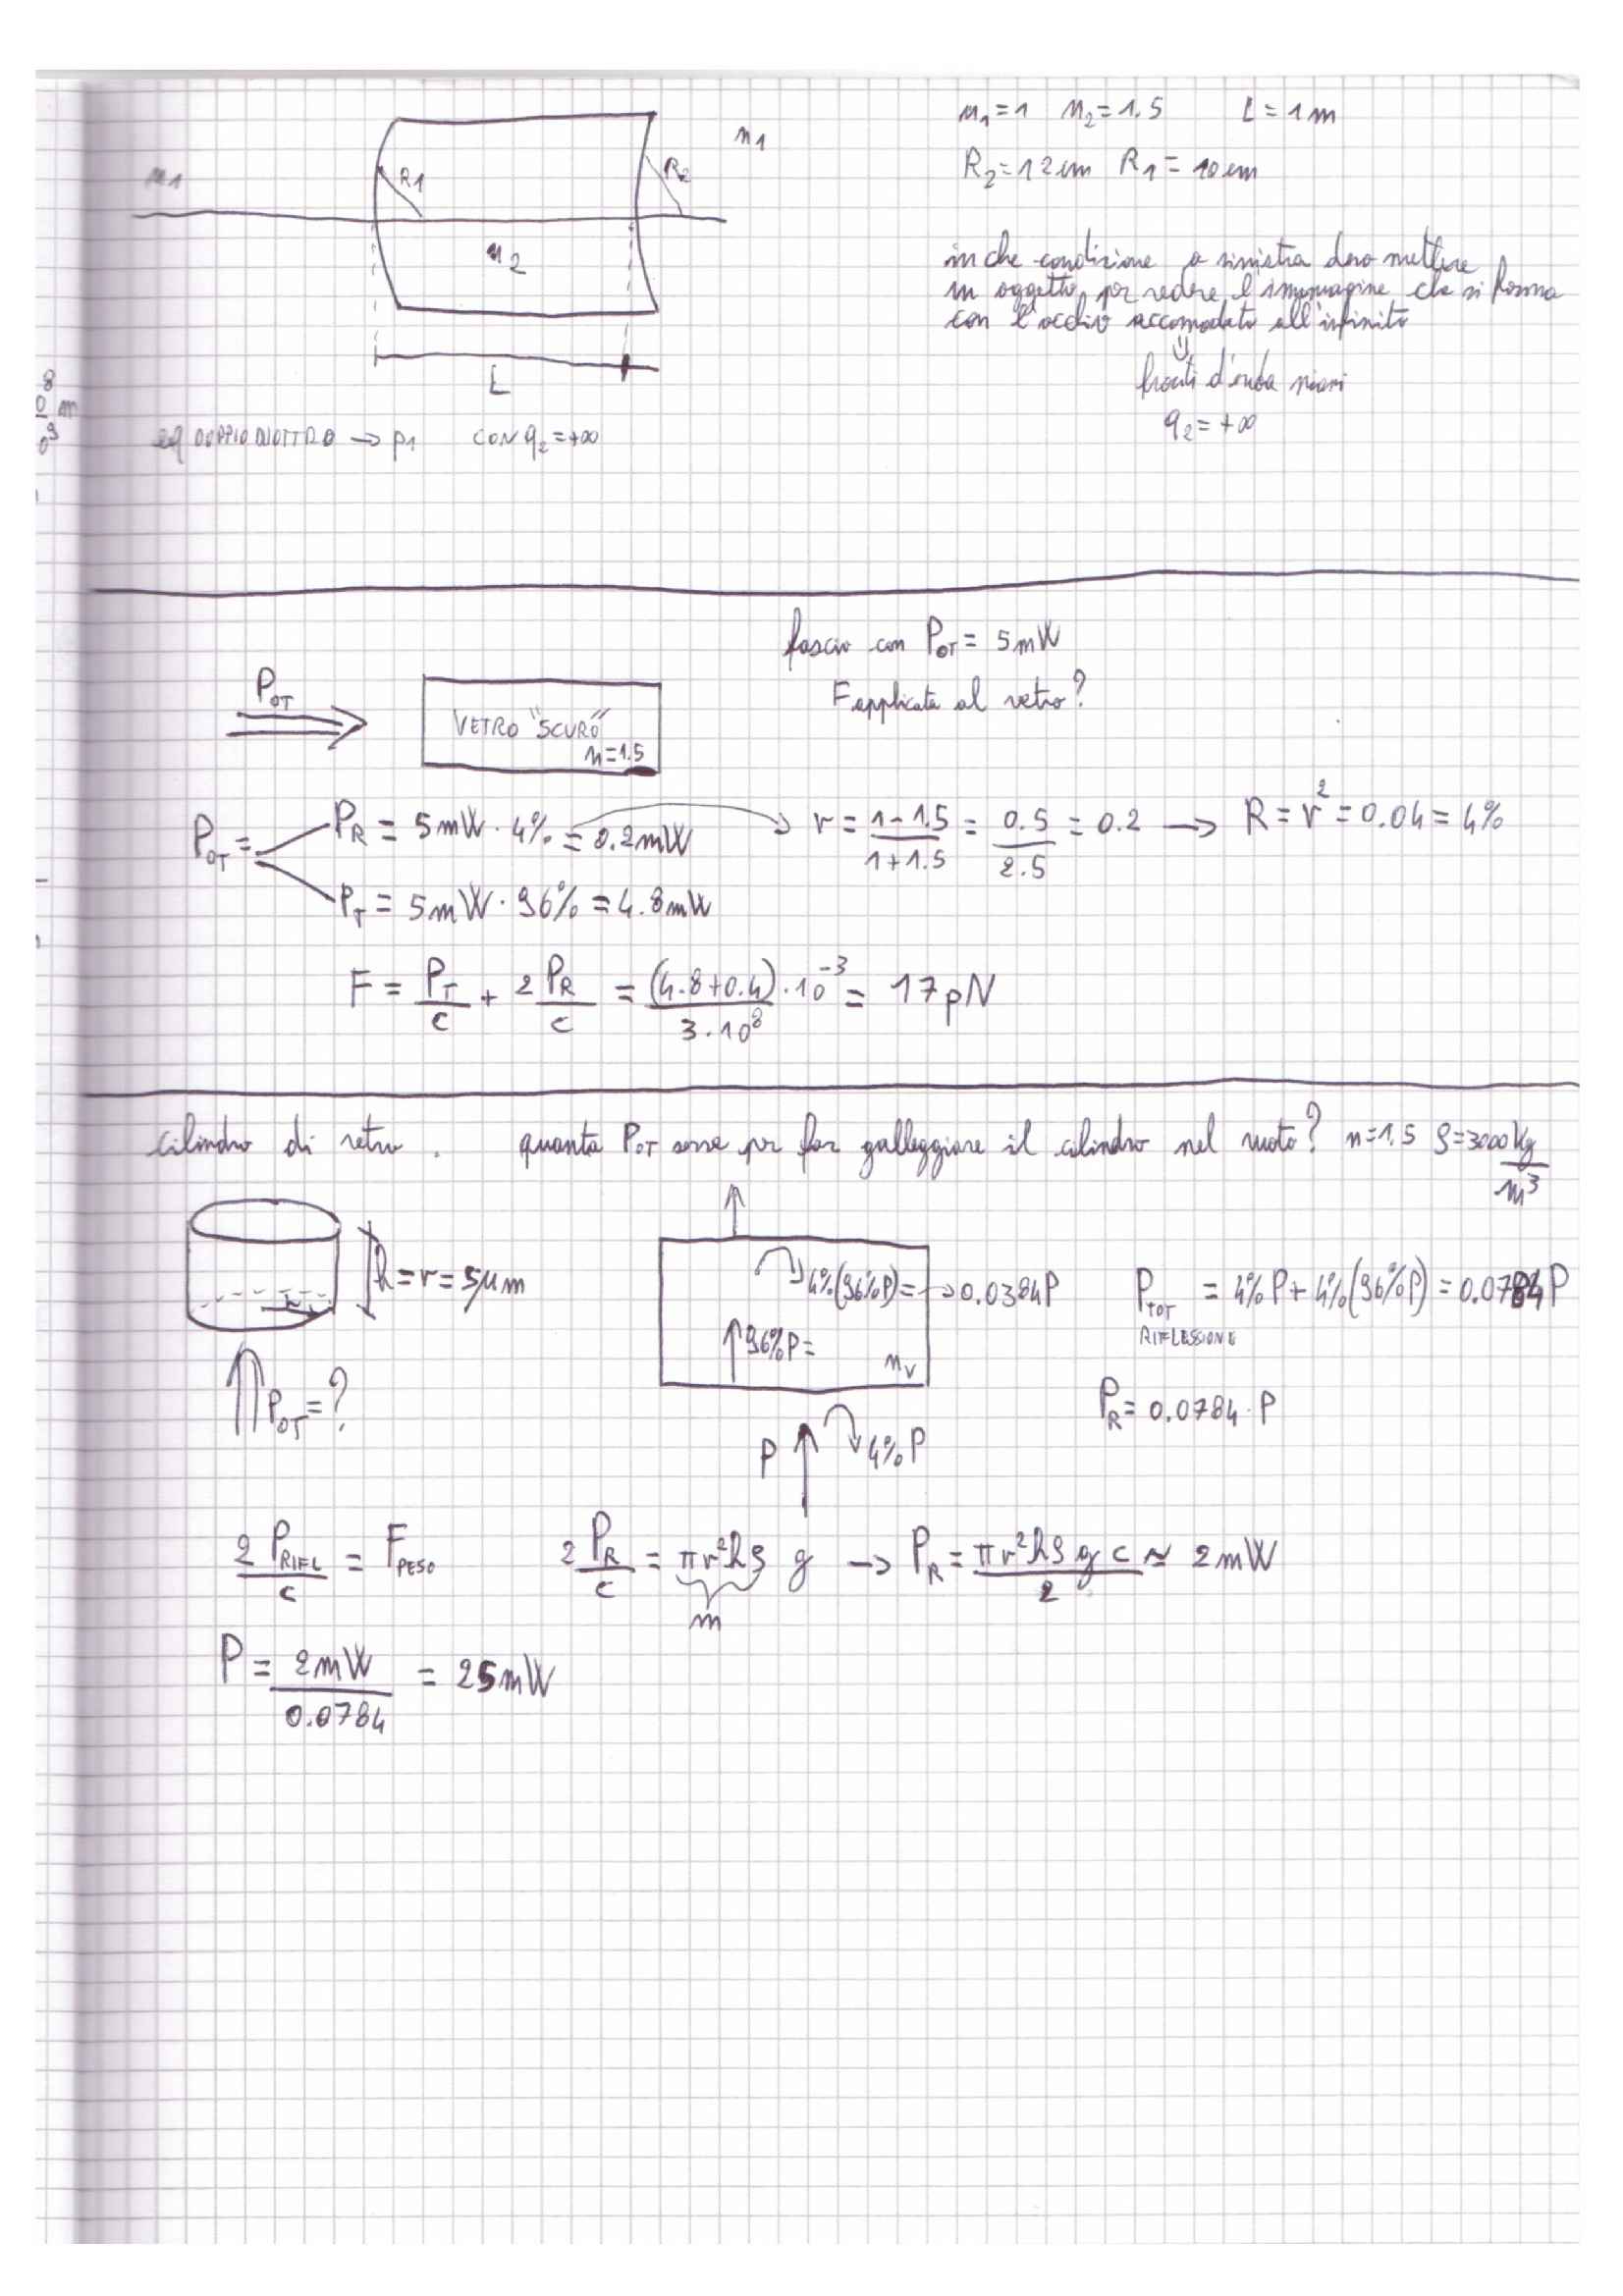 n1=1 n2=1.5 L=1m
R2=12cm R1=10cm
n1
n1
R1
R2
n2
L
in che condizione a sinistra devo mettere
un oggetto per vedere l'immagine che si forma
con l'occhio accomodato all'infinito
⇓
fronti d'onda piani
q2=+∞
eq DOPPIO DIOTTRO → p1 CON q2=+∞
8
0 m
fascio con POT= 5mW
F applicata al vetro?
POT
VETRO "SCURO"
n=1.5
POT=
PR = 5mW·4% = 0.2mW → r = (1-1.5)/(1+1.5) = 0.5/2.5 = 0.2 → R = r² = 0.04 = 4%
PT = 5mW·96% = 4.8mW
F = PT/c + 2 PR/c = (4.8+0.4)·10⁻³/3·10⁸ = 17pN
cilindro di vetro. quanta POT serve per far galleggiare il cilindro nel vuoto? n=1.5 ρ=3000 kg/m³
h=r=5μm
POT=?
4%(96%P)=→0.0384P
96%P=
nv
P
4%P
PTOT RIFLESSIONE = 4%P+4%(96%P)=0.0784P
PR=0.0784·P
2 PRIFL/c = FPESO 2 PR/c = πr²hρ g → PR = πr²hρ g c/2 ≈ 2mW
m
P = 2mW/0.0784 = 25mW